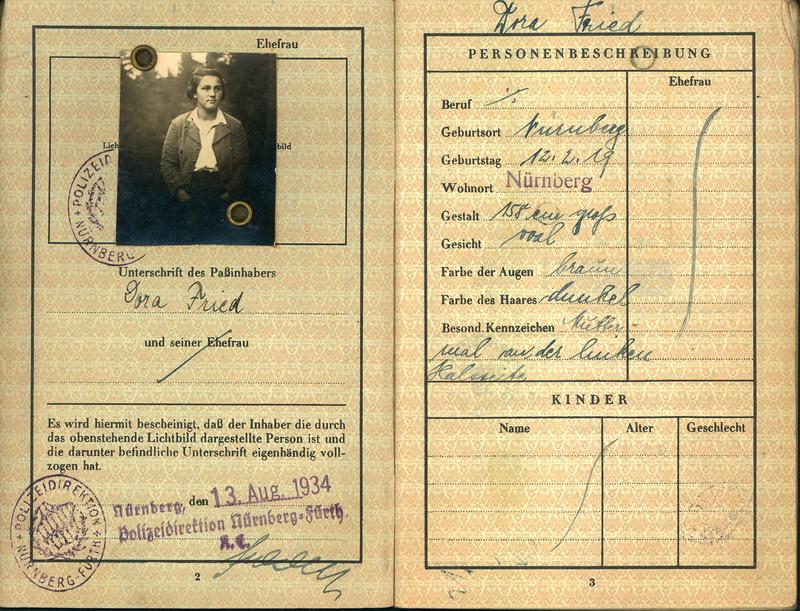 Ehefrau
Lich
bild
POLIZEID
NÜRNBERG
Unterschrift des Paßinhabers
Dora Fried
und seiner Ehefrau
Es wird hiermit bescheinigt, daß der Inhaber die durch
das obenstehende Lichtbild dargestellte Person ist und
die darunter befindliche Unterschrift eigenhändig voll-
zogen hat.
POLIZEIDIREKTION
NÜRNBERG-FÜRTH
Nürnberg, den 13. Aug. 1934
Polizeidirektion Nürnberg-Fürth
2
Dora Fried
PERSONENBESCHREIBUNG
Ehefrau
Beruf ./.
Geburtsort Nürnberg
Geburtstag 12.2.19
Wohnort Nürnberg
Gestalt 158 cm groß
Gesicht oval
Farbe der Augen braun
Farbe des Haares dunkel
Besond. Kennzeichen Mutter-
mal an der linken
Halsseite
KINDER
Name Alter Geschlecht
3